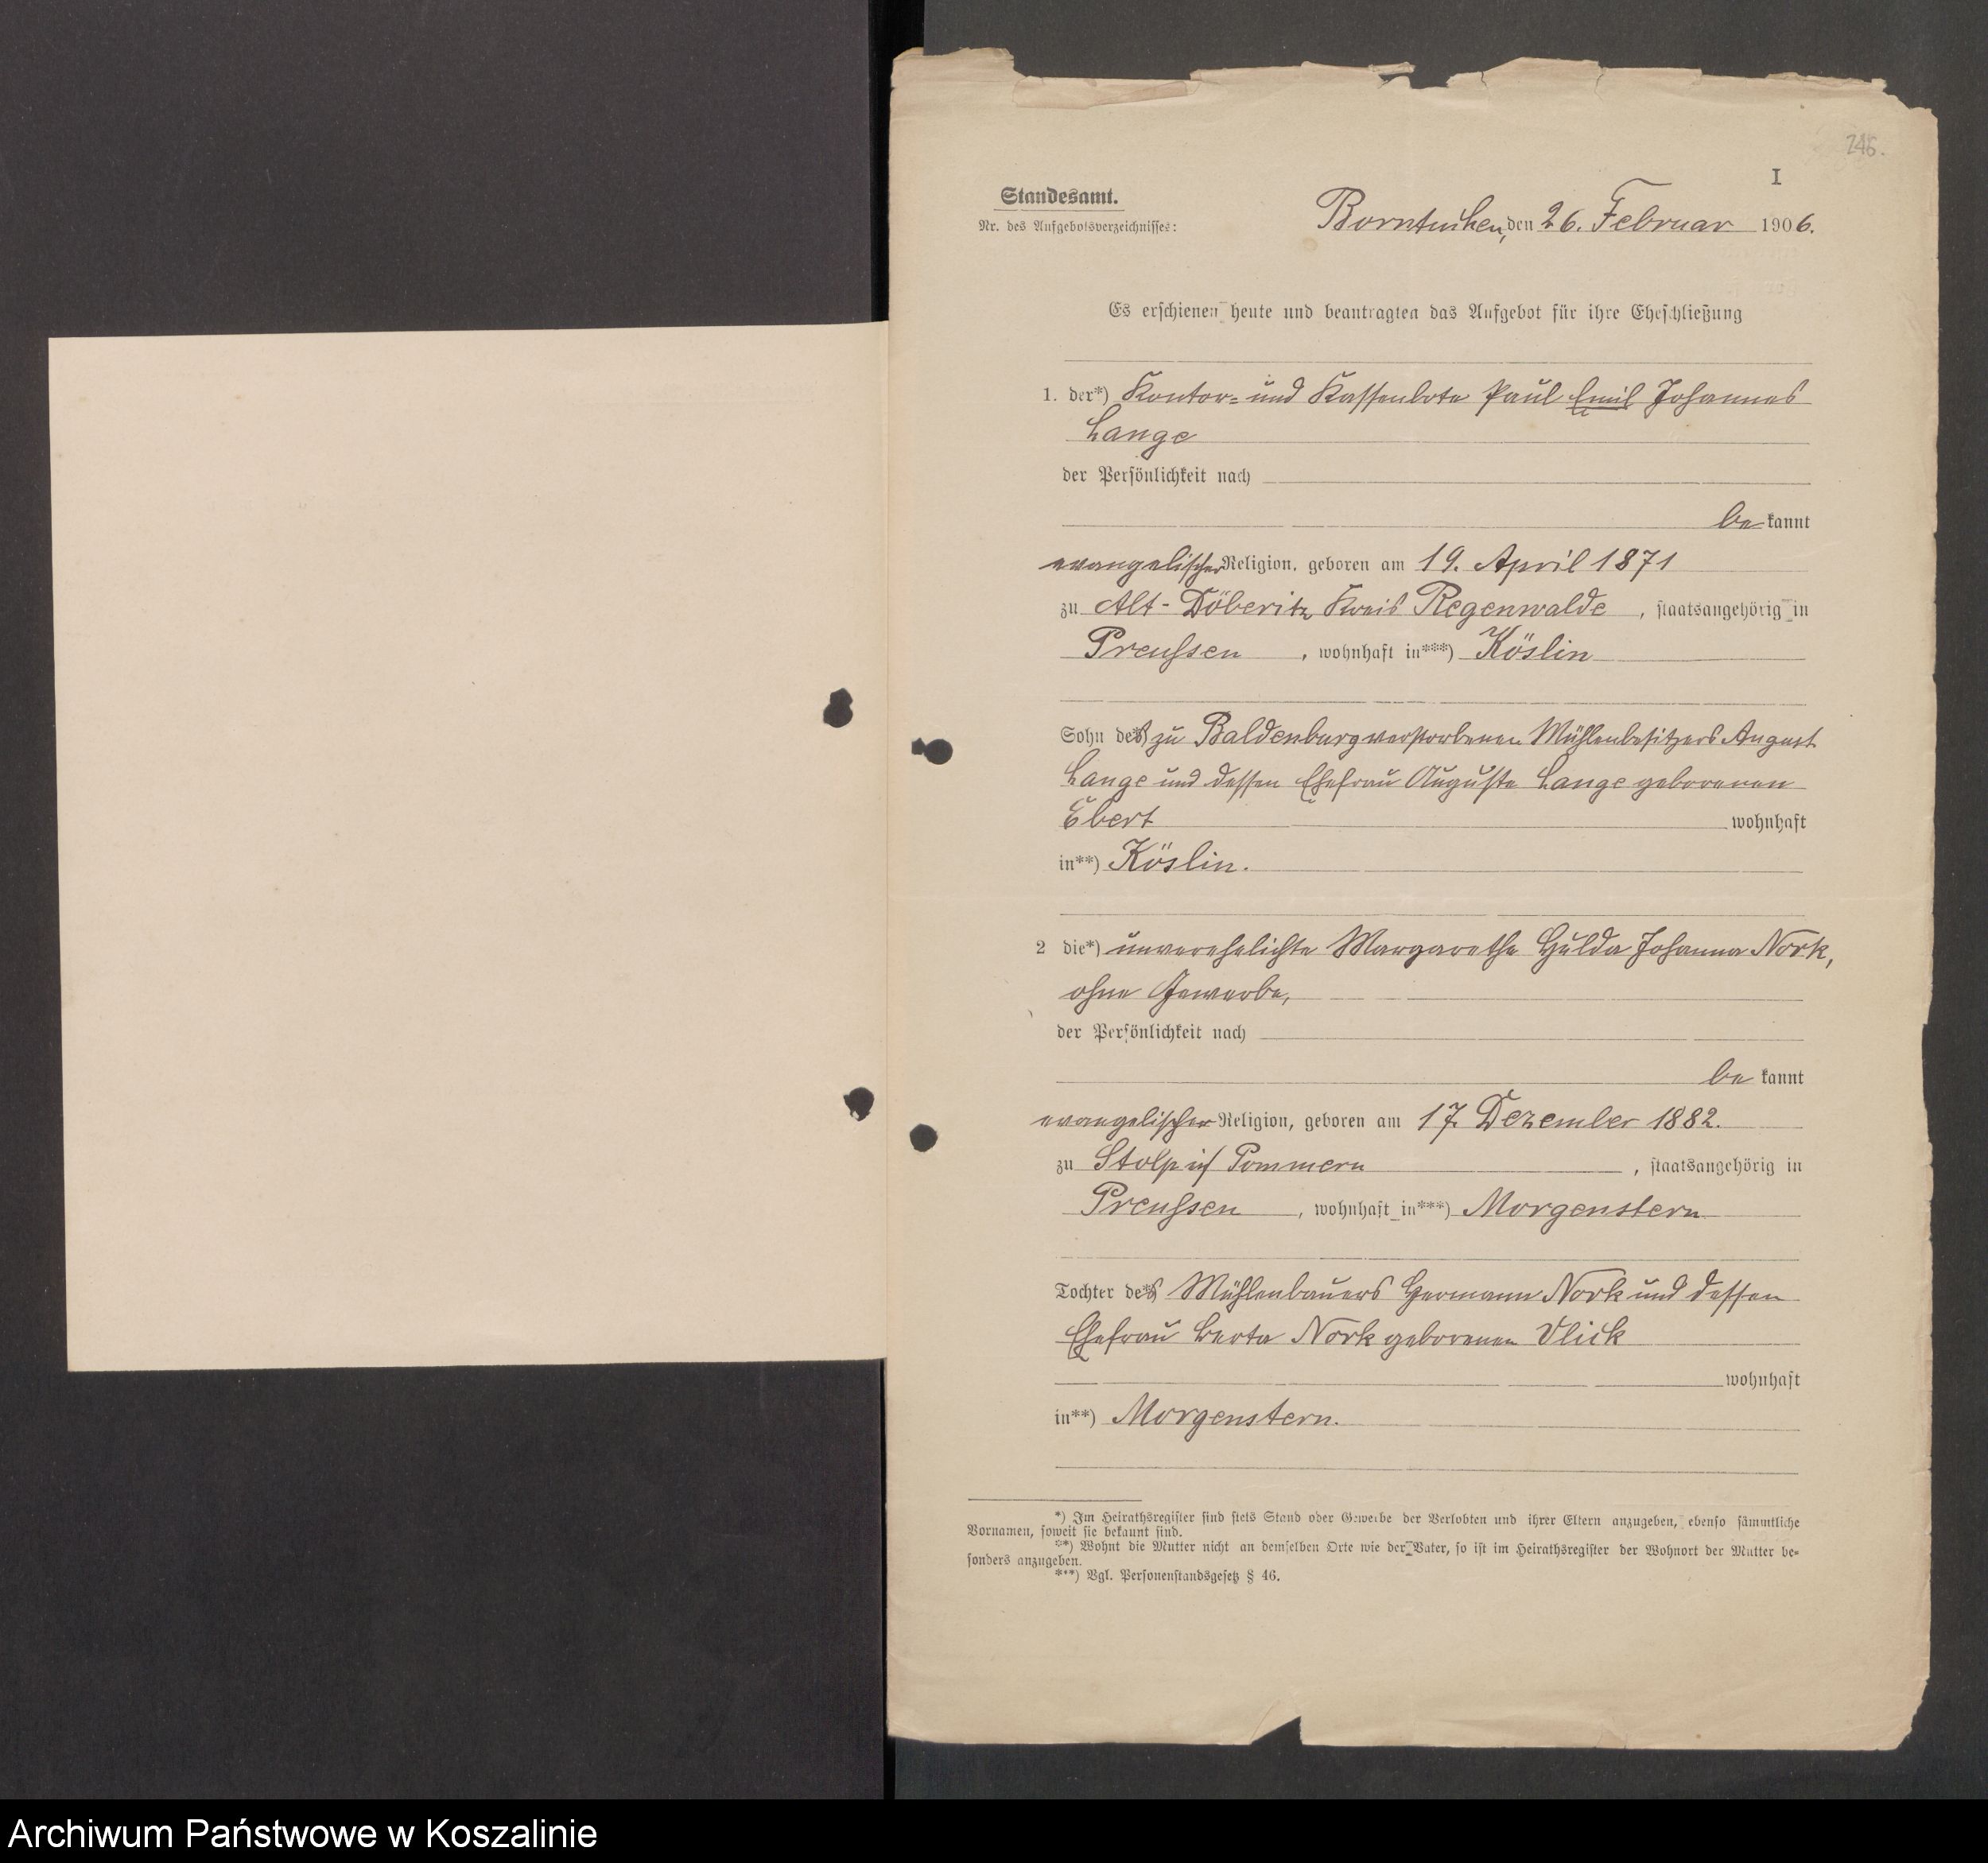 246.
I
Standesamt.
Nr. des Aufgebotsverzeichnisses:
Borntuchen, den 26. Februar 1906.
Es erschienen heute und beantragten das Aufgebot für ihre Eheschließung
1. der*) Kontor- und Kassenbote Paul Emil Johannes
Lange
der Persönlichkeit nach
be kannt
evangelischer Religion, geboren am 19. April 1871
zu Alt-Döberitz Kreis Regenwalde, staatsangehörig in
Preußen, wohnhaft in***) Köslin
Sohn des zu Baldenburg verstorbenen Mühlenbesitzers August
Lange und dessen Ehefrau Auguste Lange geborenen
Ebert wohnhaft
in**) Köslin.
2 die*) unverehelichte Margarethe Hulda Johanna Nork,
ohne Gewerbe,
der Persönlichkeit nach
be kannt
evangelischer Religion, geboren am 17. Dezember 1882.
zu Stolp i/ Pommern, staatsangehörig in
Preußen, wohnhaft in***) Morgenstern
Tochter des Mühlenbauers Hermann Nork und dessen
Ehefrau Berta Nork geborenen Ulick
wohnhaft
in**) Morgenstern.
*) Im Heirathsregister sind stets Stand oder Gewerbe der Verlobten und ihrer Eltern anzugeben, ebenso sämmtliche
Vornamen, soweit sie bekannt sind.
**) Wohnt die Mutter nicht an demselben Orte wie der Vater, so ist im Heirathsregister der Wohnort der Mutter be-
sonders anzugeben.
***) Vgl. Personenstandsgesetz § 46.
Archiwum Państwowe w Koszalinie